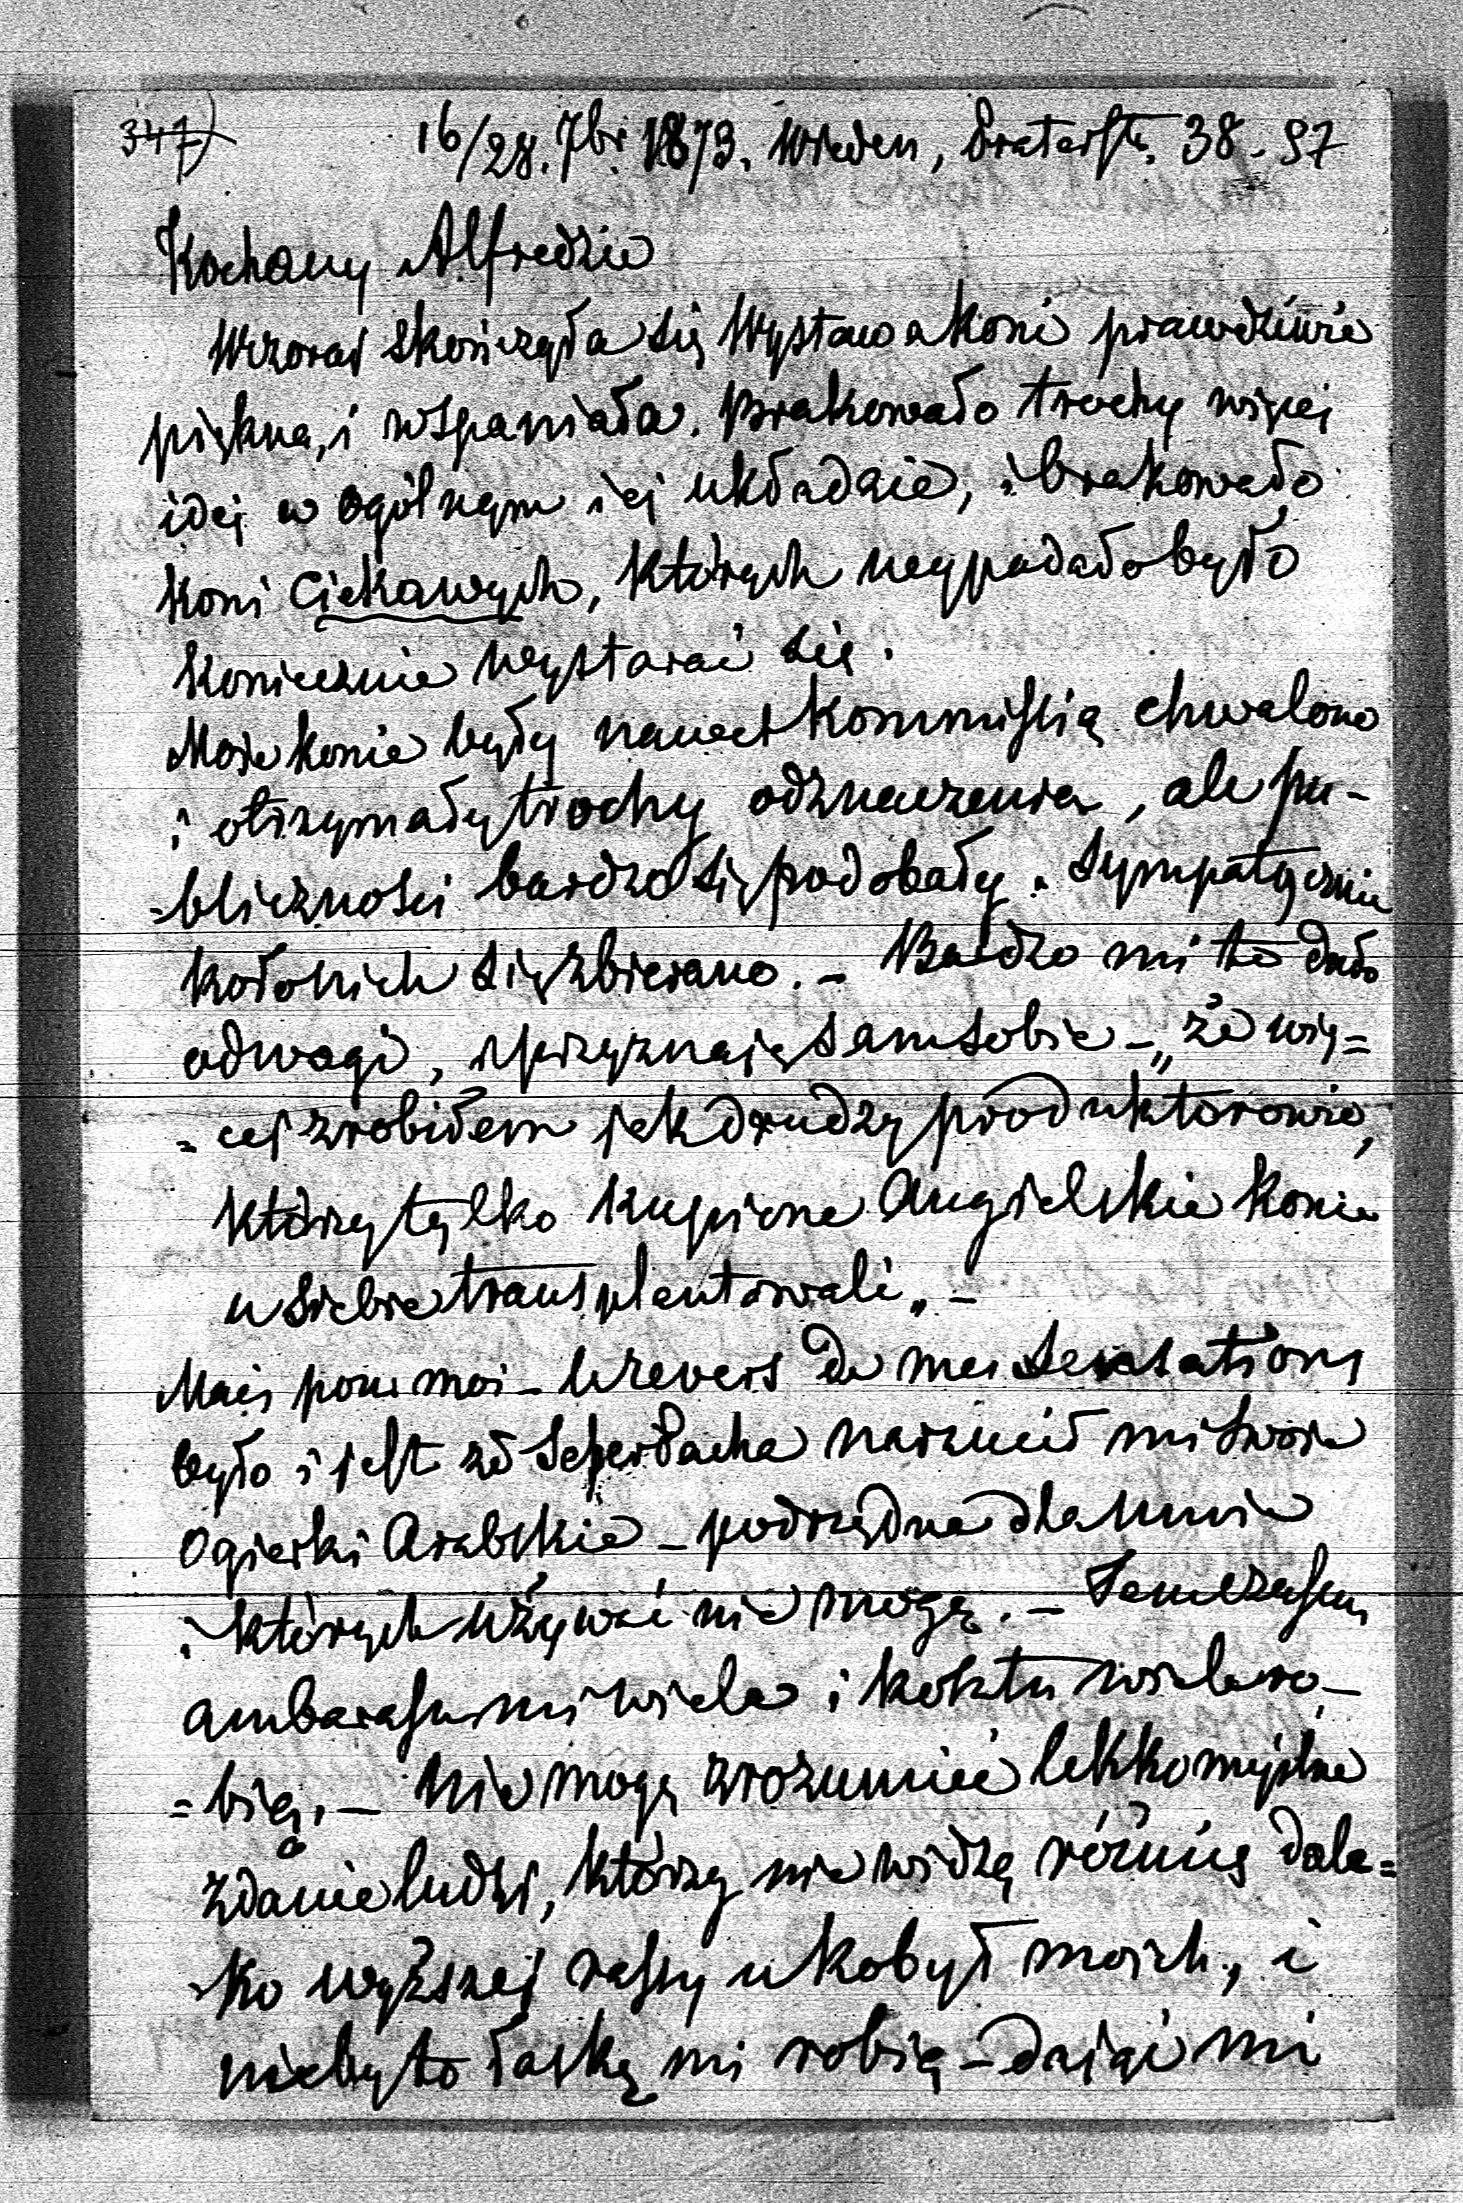 347)
16/28. 7br. 1873. Wieden, Praterstr. 38-97
Kochany Alfredzie
Wczoraj skończyła się Wystawa koni prawdziwie
piękna, i wspaniała. Brakowało trochę więcej
idei w ogólnym iej układzie, i brakowało
koni ciekawych, których wypadało było
koniecznie wystarać się.
Moje konie były nawet Kommissią chwalone
i otrzymały trochy odznaczenia, ale pu-
=bliczności bardzo się podobały. Sympatycznie
koło nich się zbierano. - Bardzo mi to dało
odwagi, i przyznaję sam sobie - „że wię=
=cej zrobiłem jak drudzy produktorowie,
którzy tylko kupione Angielskie konie
u siebie transplantowali„ -
Mais pour moi - le revers de mes sensations
było i jest że Scherbacha narzucił mi swoie
Ogierki Arabskie - podrzędne dla mnie
i których używać nie mogę. - Tem czasem
ambarasu mi wiele i kosztu wiele ro-
=bią. - Nie mogę zrozumieć lekkomyślne
zdanie ludzi, którzy nie widzą różnicę dale=
-ko wyższej rassy u kobył moich, i
niebyto łaskę mi robią - dając mi